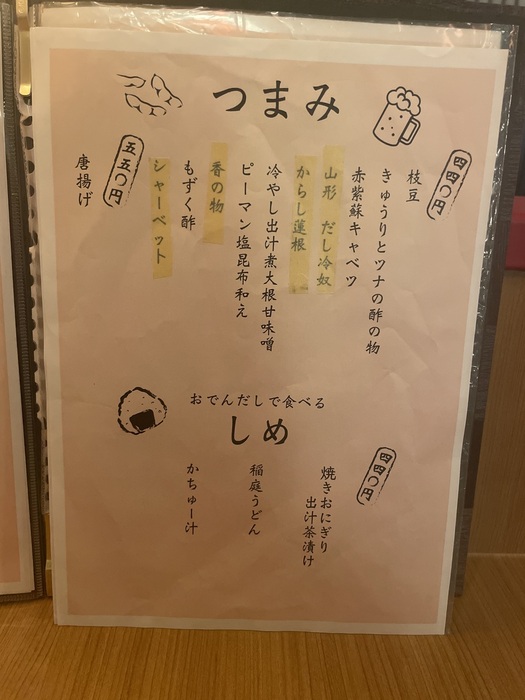 つまみ
四四〇円
枝豆
きゅうりとツナの酢の物
赤紫蘇キャベツ
山形 だし冷奴
からし蓮根
冷やし出汁煮大根甘味噌
ピーマン塩昆布和え
香の物
もずく酢
シャーベット
五五〇円
唐揚げ
おでんだしで食べる
しめ
四四〇円
焼きおにぎり
出汁茶漬け
稲庭うどん
かちゅー汁